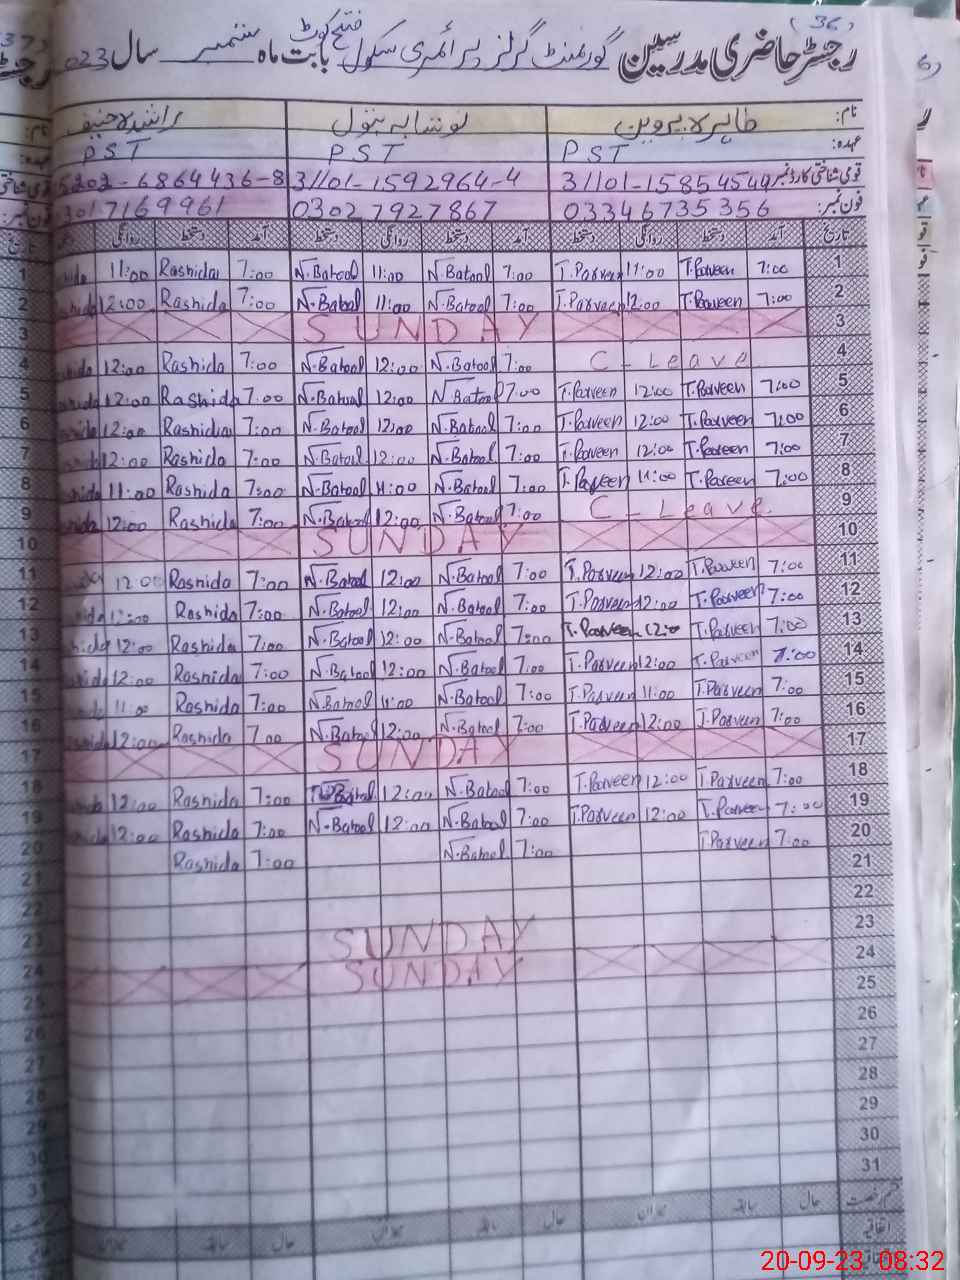 (36)
رجسٹر حاضری مدرسین گورنمنٹ گرلز پرائمری سکول فتح کوٹ بابت ماہ ستمبر سال 023
نام: طاہرہ پروین نوشابہ بتول راشدہ حنیف
عہدہ: PST PST PST
قومی شناختی کارڈ نمبر 31101-15854549 31101-1592964-4 5202-6864436-8
فون نمبر: 03346735356 03027927867 3017169961
تاریخ آمد دستخط روانگی دستخط آمد دستخط روانگی دستخط آمد دستخط روانگی
1 7:00 T.Parveen 11:00 T.Parveen 7:00 N.Batool 11:00 N.Batool 7:00 Rashida 11:00
2 7:00 T.Parveen 12:00 T.Parveen 7:00 N.Batool 11:00 N.Batool 7:00 Rashida 12:00
3 SUNDAY
4 C-Leave 7:00 N.Batool 12:00 N.Batool 7:00 Rashida 12:00
5 7:00 T.Parveen 12:00 T.Parveen 7:00 N.Batool 12:00 N.Batool 7:00 Rashida 12:00
6 7:00 T.Parveen 12:00 T.Parveen 7:00 N.Batool 12:00 N.Batool 7:00 Rashida 12:00
7 7:00 T.Parveen 12:00 T.Parveen 7:00 N.Batool 12:00 N.Batool 7:00 Rashida 12:00
8 7:00 T.Parveen 11:00 T.Parveen 7:00 N.Batool 11:00 N.Batool 7:00 Rashida 11:00
9 C-Leave 7:00 N.Batool 12:00 N.Batool 7:00 Rashida 12:00
10 SUNDAY
11 7:00 T.Parveen 12:00 T.Parveen 7:00 N.Batool 12:00 N.Batool 7:00 Rashida 12:00
12 7:00 T.Parveen 12:00 T.Parveen 7:00 N.Batool 12:00 N.Batool 7:00 Rashida 12:00
13 7:00 T.Parveen 12:00 T.Parveen 7:00 N.Batool 12:00 N.Batool 7:00 Rashida 12:00
14 7:00 T.Parveen 12:00 T.Parveen 7:00 N.Batool 12:00 N.Batool 7:00 Rashida 12:00
15 7:00 T.Parveen 11:00 T.Parveen 7:00 N.Batool 11:00 N.Batool 7:00 Rashida 11:00
16 7:00 T.Parveen 12:00 T.Parveen 7:00 N.Batool 12:00 N.Batool 7:00 Rashida 12:00
17 SUNDAY
18 7:00 T.Parveen 12:00 T.Parveen 7:00 N.Batool 12:00 N.Batool 7:00 Rashida 12:00
19 7:00 T.Parveen 12:00 T.Parveen 7:00 N.Batool 12:00 N.Batool 7:00 Rashida 12:00
20 7:00 T.Parveen 7:00 N.Batool 7:00 Rashida
21
22
23 SUNDAY
24 SUNDAY
25
26
27
28
29
30
31
حال سابقہ میزان حال سابقہ میزان حال سابقہ میزان
اتفاقیہ
20-09-23 08:32